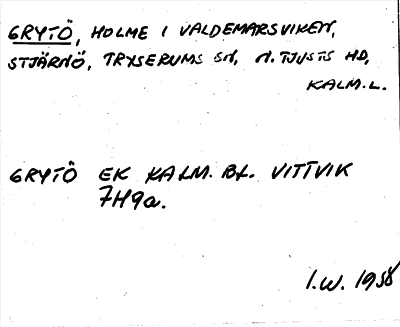 GRYTÖ, HOLME I VALDEMARSVIKEN,
STJÄRNÖ, TRYSERUMS SN, N. TJUSTS HD,
KALM. L.
GRYTÖ EK KALM. BL. VITTVIK
7H9a.
I.W. 1958